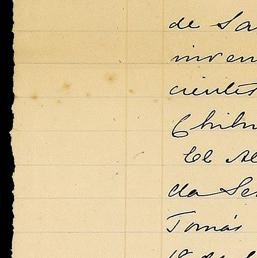 de Sa
inven
cientes
Chihu
El Al
da Se
Tomás